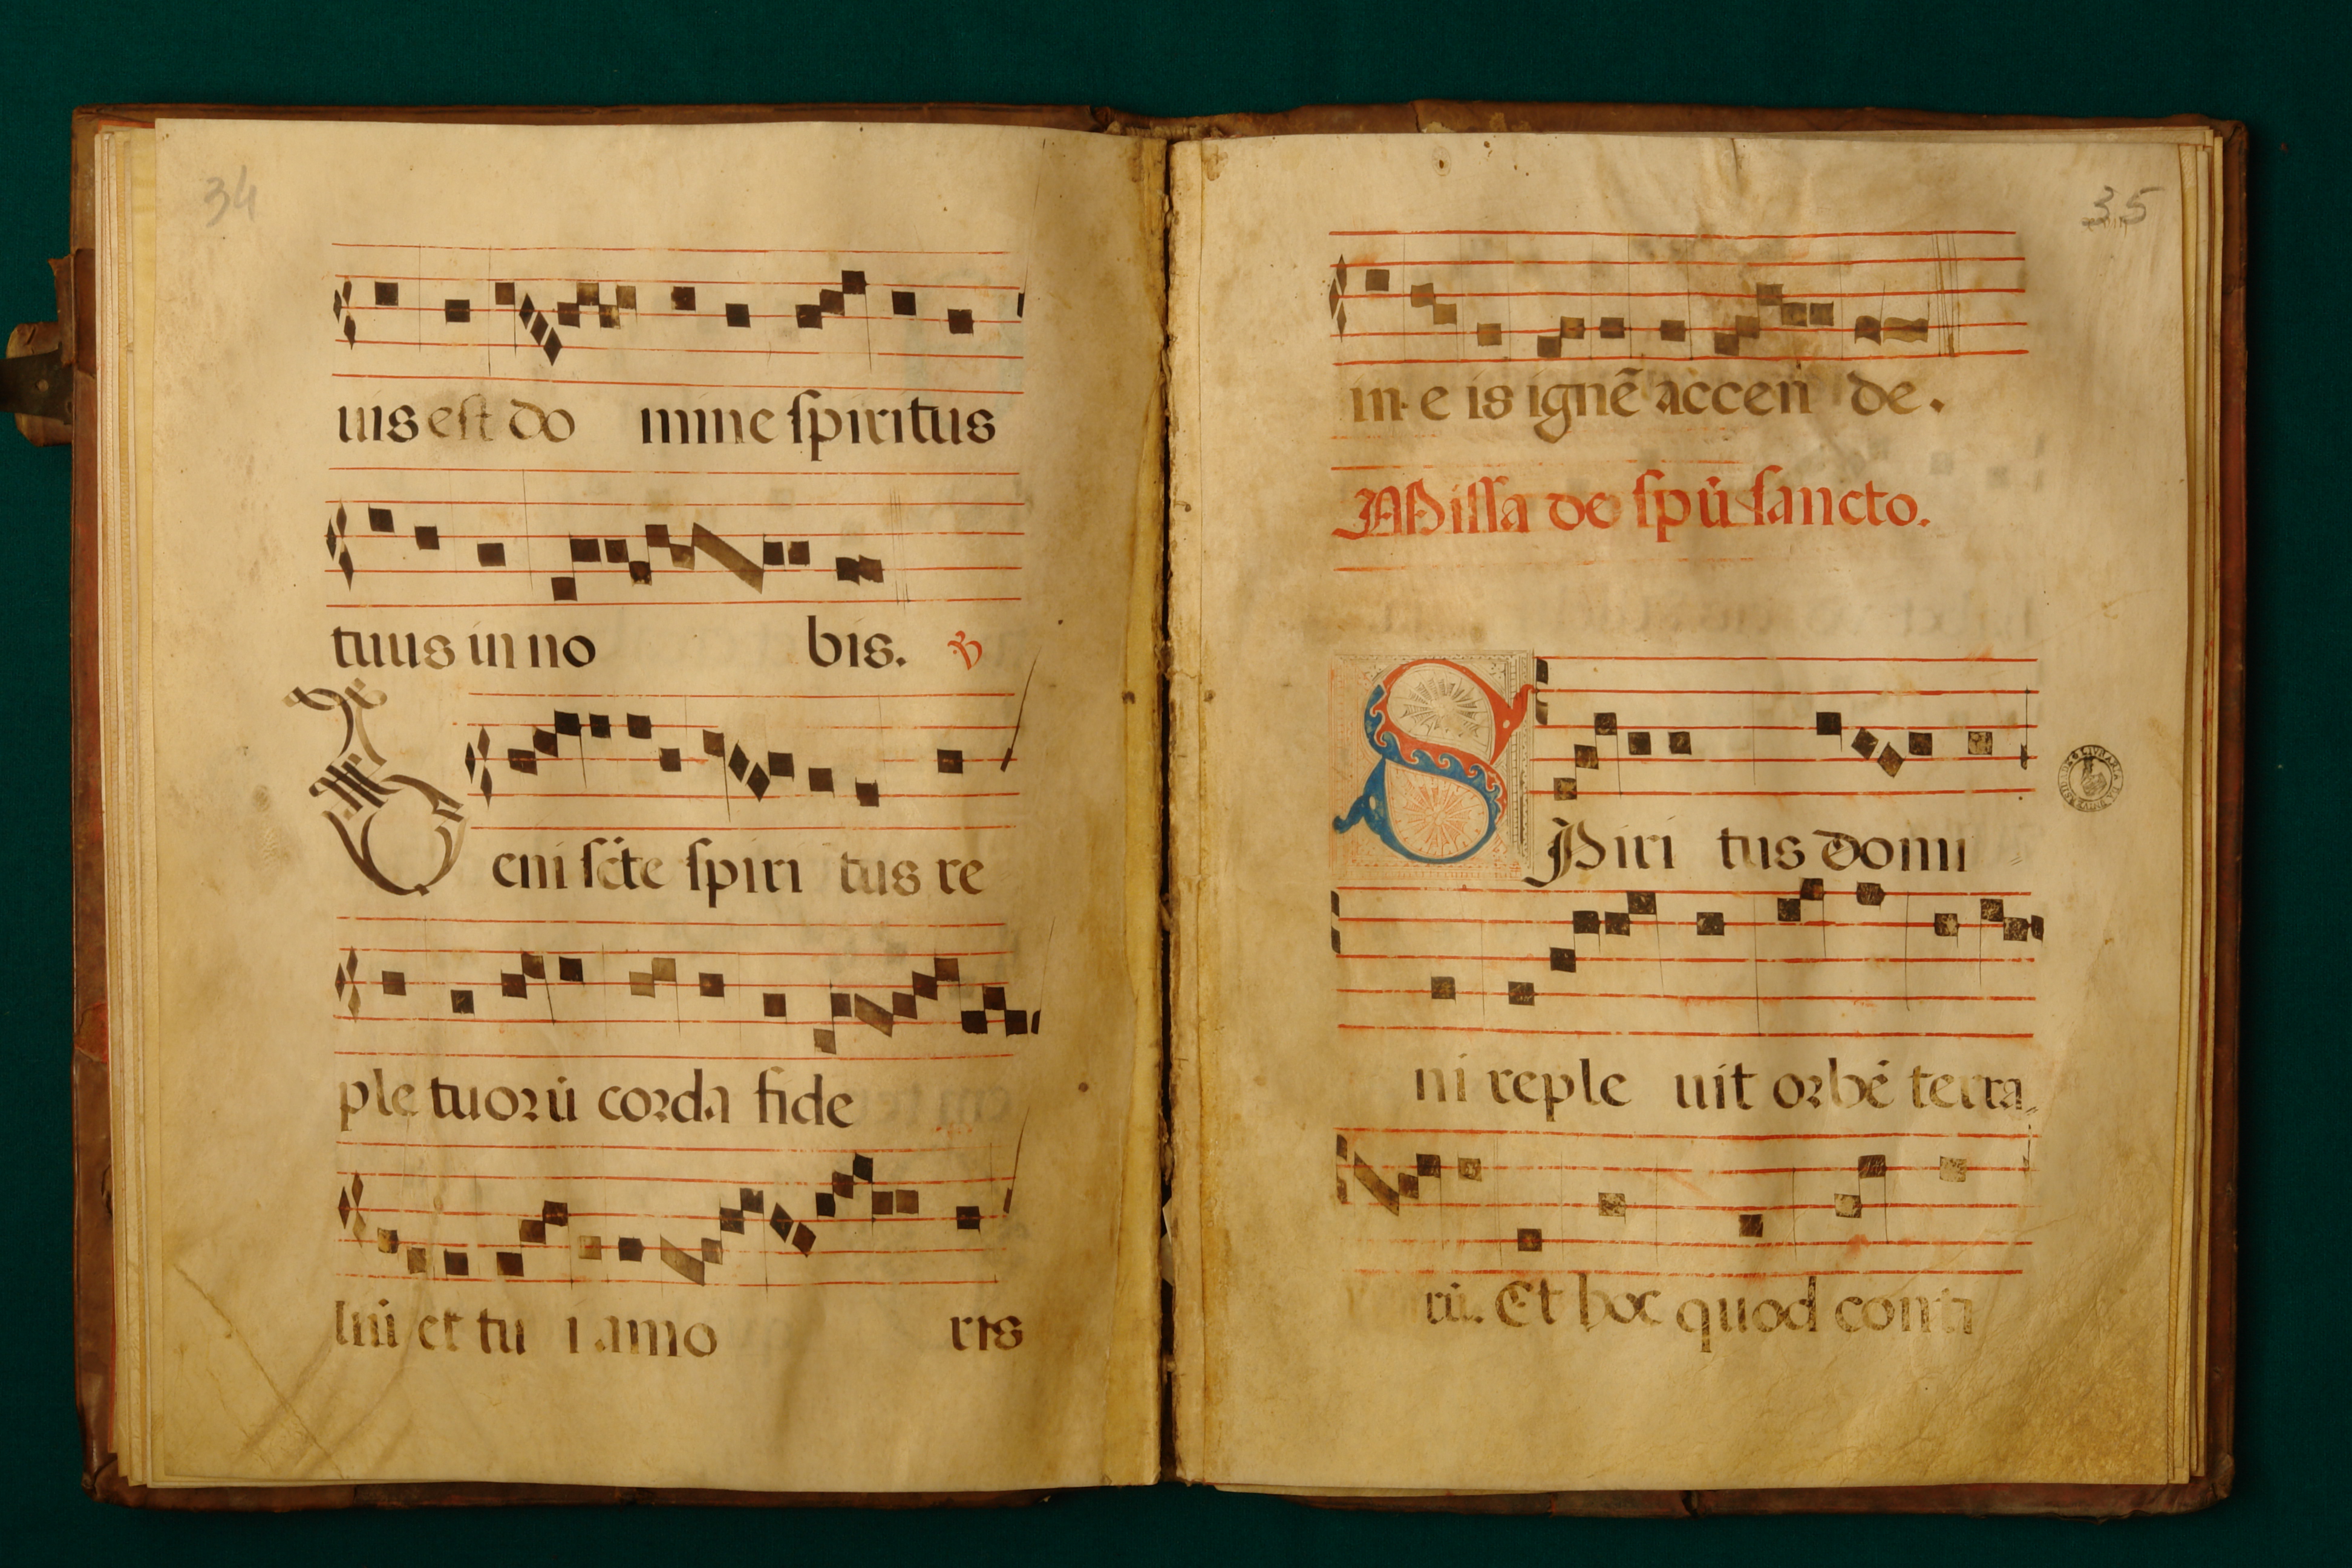 34
uis est do mine spiritus
tuus in no bis. ℣
Veni scẽte spiri tus re
ple tuorũ corda fide
liũ et tu i amo ris
35
in e is ignẽ accen de.
Missa de spũ sancto.
SPiri tus domi
ni reple uit orbẽ terra
rũ. Et hoc quod conti